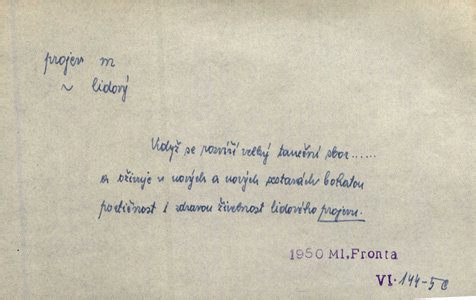 projev m
~ lidový
Když se rozvíří velký taneční sbor......
a oživuje v nových a nových sestavách bohatou
poetičnost i zdravou živelnost lidového projevu.
1950 Ml. Fronta
VI. 144-5